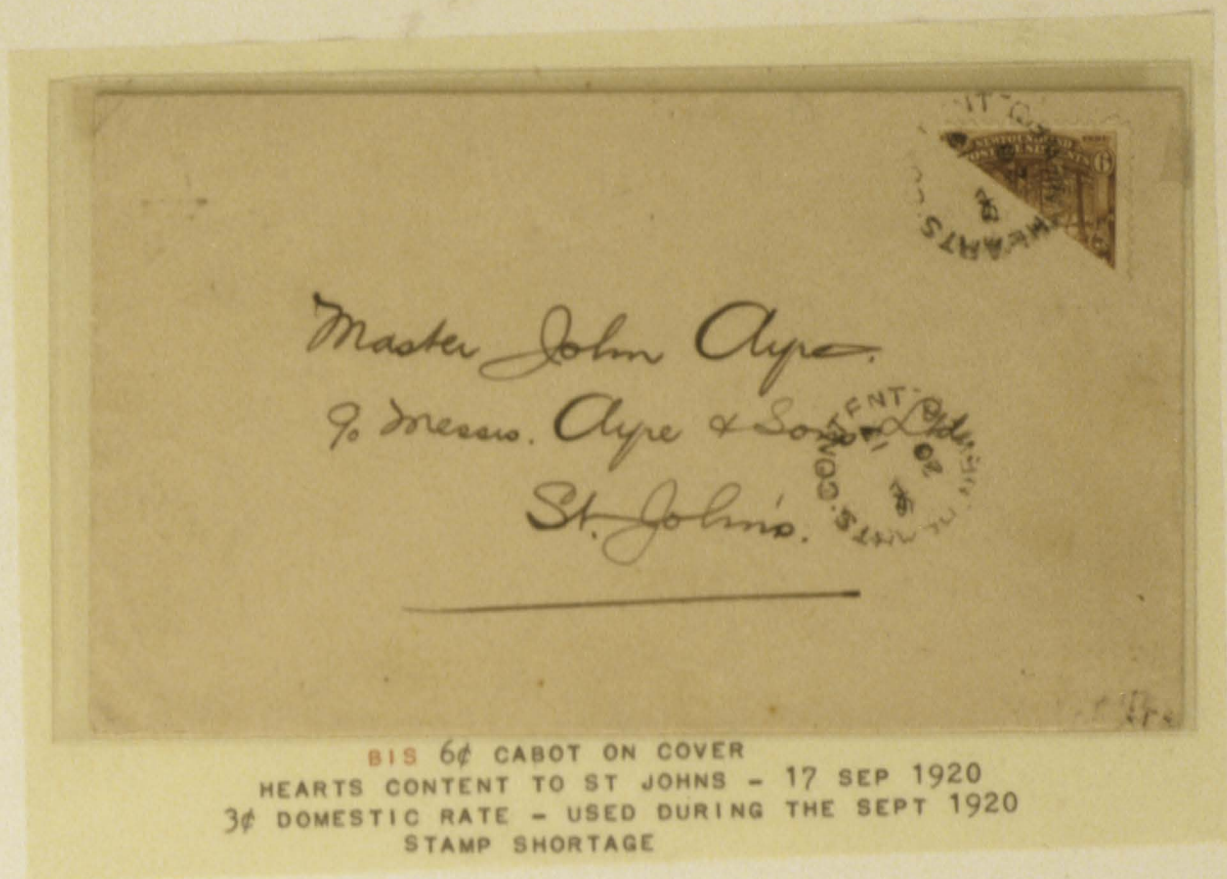 NEWFOUNDLAND
6
HEARTS CONTENT
Master John Ayre.
c/o Messrs. Ayre & Sons Ltd
St. John's.
HEARTS CONTENT
20
BIS 6¢ CABOT ON COVER
HEARTS CONTENT TO ST JOHNS – 17 SEP 1920
3¢ DOMESTIC RATE – USED DURING THE SEPT 1920
STAMP SHORTAGE